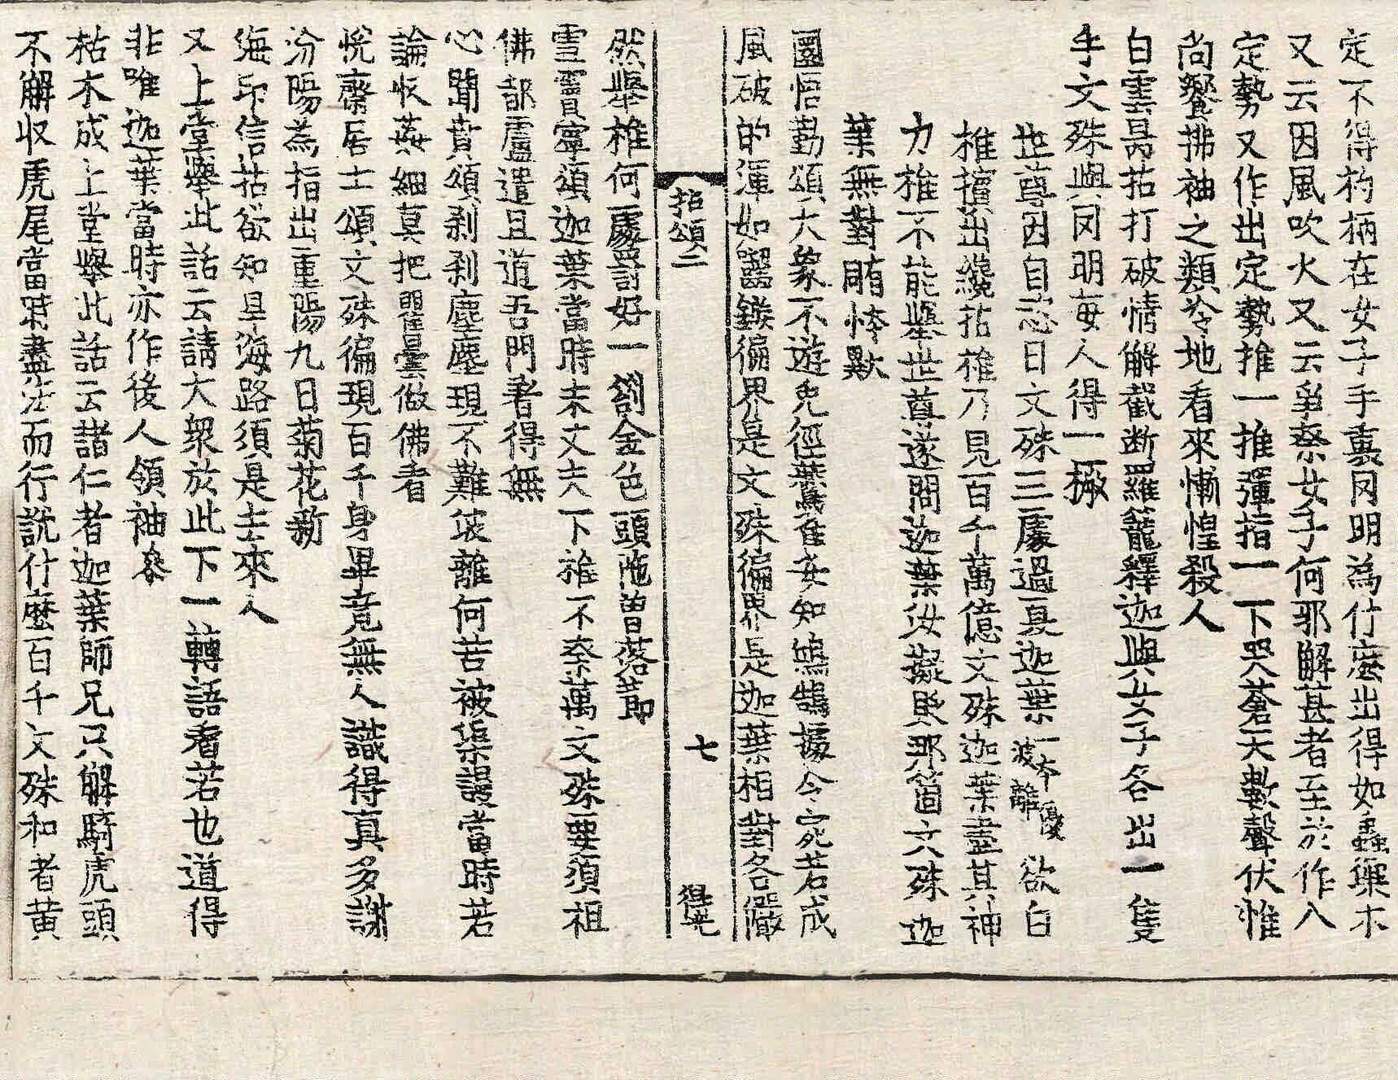 定不得杓柄在女子手裏罔明為什麼出得如蟲禦木
又云因風吹火又云爭柰女子何邪解甚者至於作入
定勢又作出定勢推一推彈指一下哭蒼天數聲伏惟
尚饗拂袖之類冷地看來慚惶殺人
白雲昺拈打破情解截斷羅籠釋迦與女子各出一隻
手文殊與罔明每人得一橛
世尊因自恣日文殊三處過夏迦葉一本優波離欲白
椎擯出纔拈椎乃見百千萬億文殊迦葉盡其神
力椎不能舉世尊遂問迦葉汝擬擯那箇文殊迦
葉無對
圜悟勤頌大象不遊兔徑鷰雀安知鴻鵠據令宛若成
風破的渾如齧鏃徧界是文殊徧界是迦葉相對各儼
拈頌二
七
然舉椎何處罸好一劄金色頭陁曾落節
雪竇寧頌迦葉當時未丈夫下椎不柰萬文殊要須祖
佛都盧遣且道吾門著得無
心聞賁頌刹刹塵塵現不難袈離何苦被渠謾當時若
論收姦細莫把瞿曇做佛看
悅齋居士頌文殊徧現百千身畢竟無人識得真多謝
汾陽為指出重陽九日菊花新
海印信拈欲知旦海路須是去來人
又上堂舉此話云請大衆於此下一轉語看若也道得
非唯迦葉當時亦作後人領袖叅
枯木成上堂舉此話云諸仁者迦葉師兄只解騎虎頭
不解收虎尾當時盡法而行說什麼百千文殊和者黃